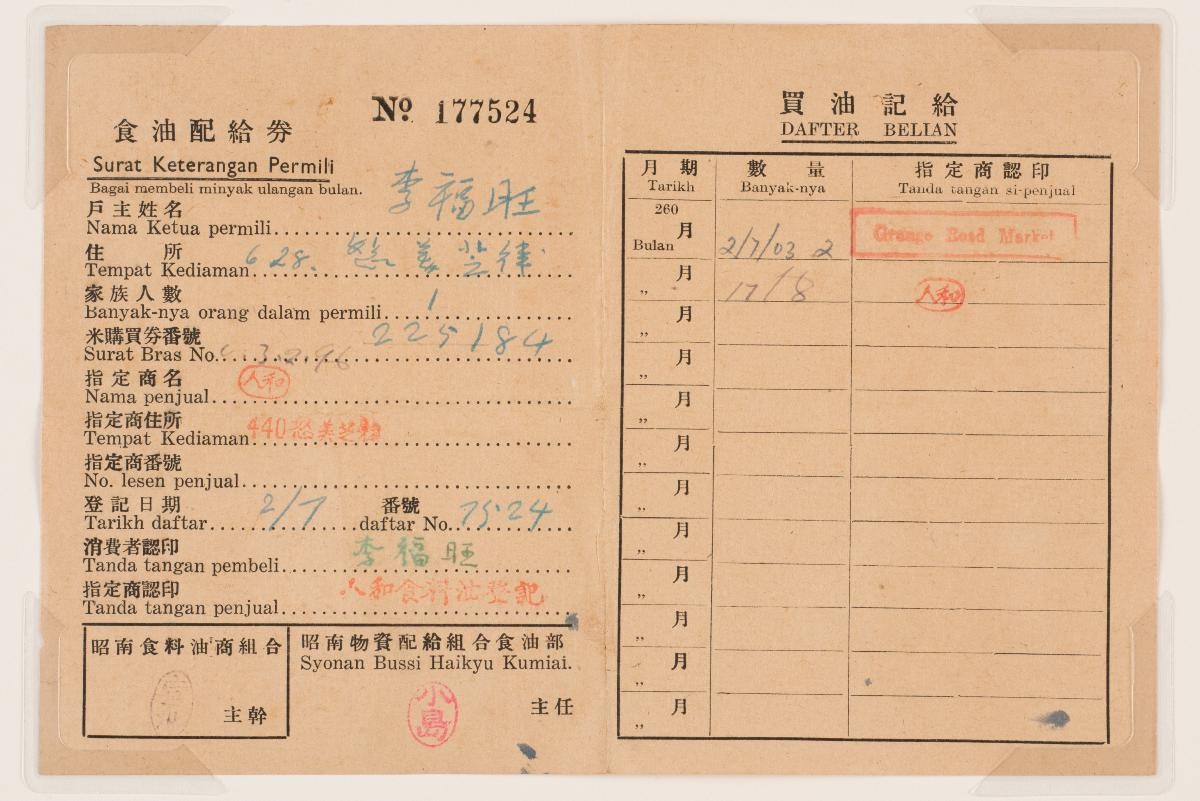 No 177524
食油配給券
Surat Keterangan Permili
Bagai membeli minyak ulangan bulan.
戶主姓名 李福旺
Nama Ketua permili
住所 628. 惹美芝律
Tempat Kediaman
家族人數 1
Banyak-nya orang dalam permili
米購買券番號 225184
Surat Bras No.
指定商名 人和
Nama penjual
指定商住所 440惹美芝律
Tempat Kediaman
指定商番號
No. lesen penjual
登記日期 2/7 番號 7524
Tarikh daftar daftar No.
消費者認印 李福旺
Tanda tangan pembeli
指定商認印 人和食料油登記
Tanda tangan penjual
昭南食料油商組合
主幹
昭南物資配給組合食油部
Syonan Bussi Haikyu Kumiai.
小島
主任
買油記給
DAFTER BELIAN
月期 數量 指定商認印
Tarikh Banyak-nya Tanda tangan si-penjual
260
月
Bulan 2/7/03 2 Grange Road Market
月
„ 17/8 人和
月
„
月
„
月
„
月
„
月
„
月
„
月
„
月
„
月
„
月
„